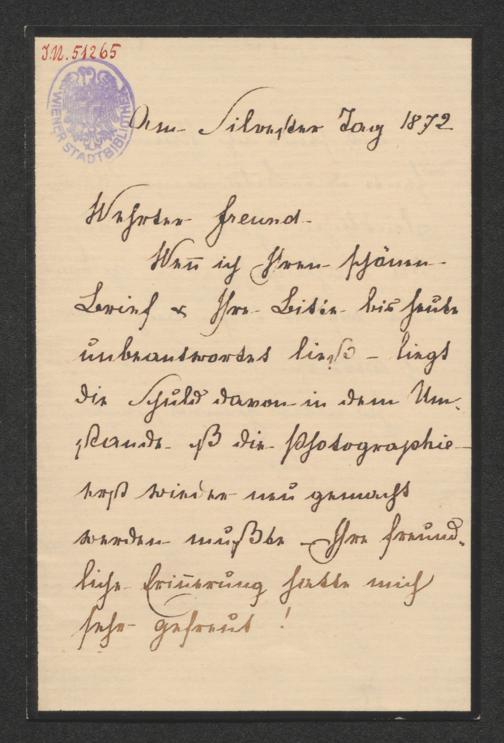 J.N. 51265
WIENER STADTBIBLIOTHEK
Am Silvester Tag 1872
Wehrter Freund
Wen̄ ich Ihren schönen
Brief & Ihre Bitte bis heute
unbeantwortet ließ – liegt
die Schuld davon in dem Um-
stande ß die Photographie
erst wieder neu gemacht
werden mußte – Ihre freund-
liche Erin̄erung hatte mich
sehr gefreut !